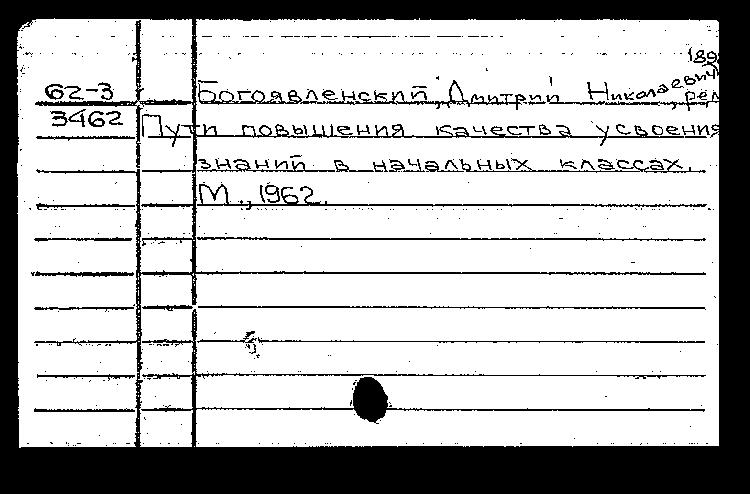 189
62-3 Богоявленский, Дмитрий Николаевич, ред
3462 Пути повышения качества усвоения
знаний в начальных классах.
М., 1962.